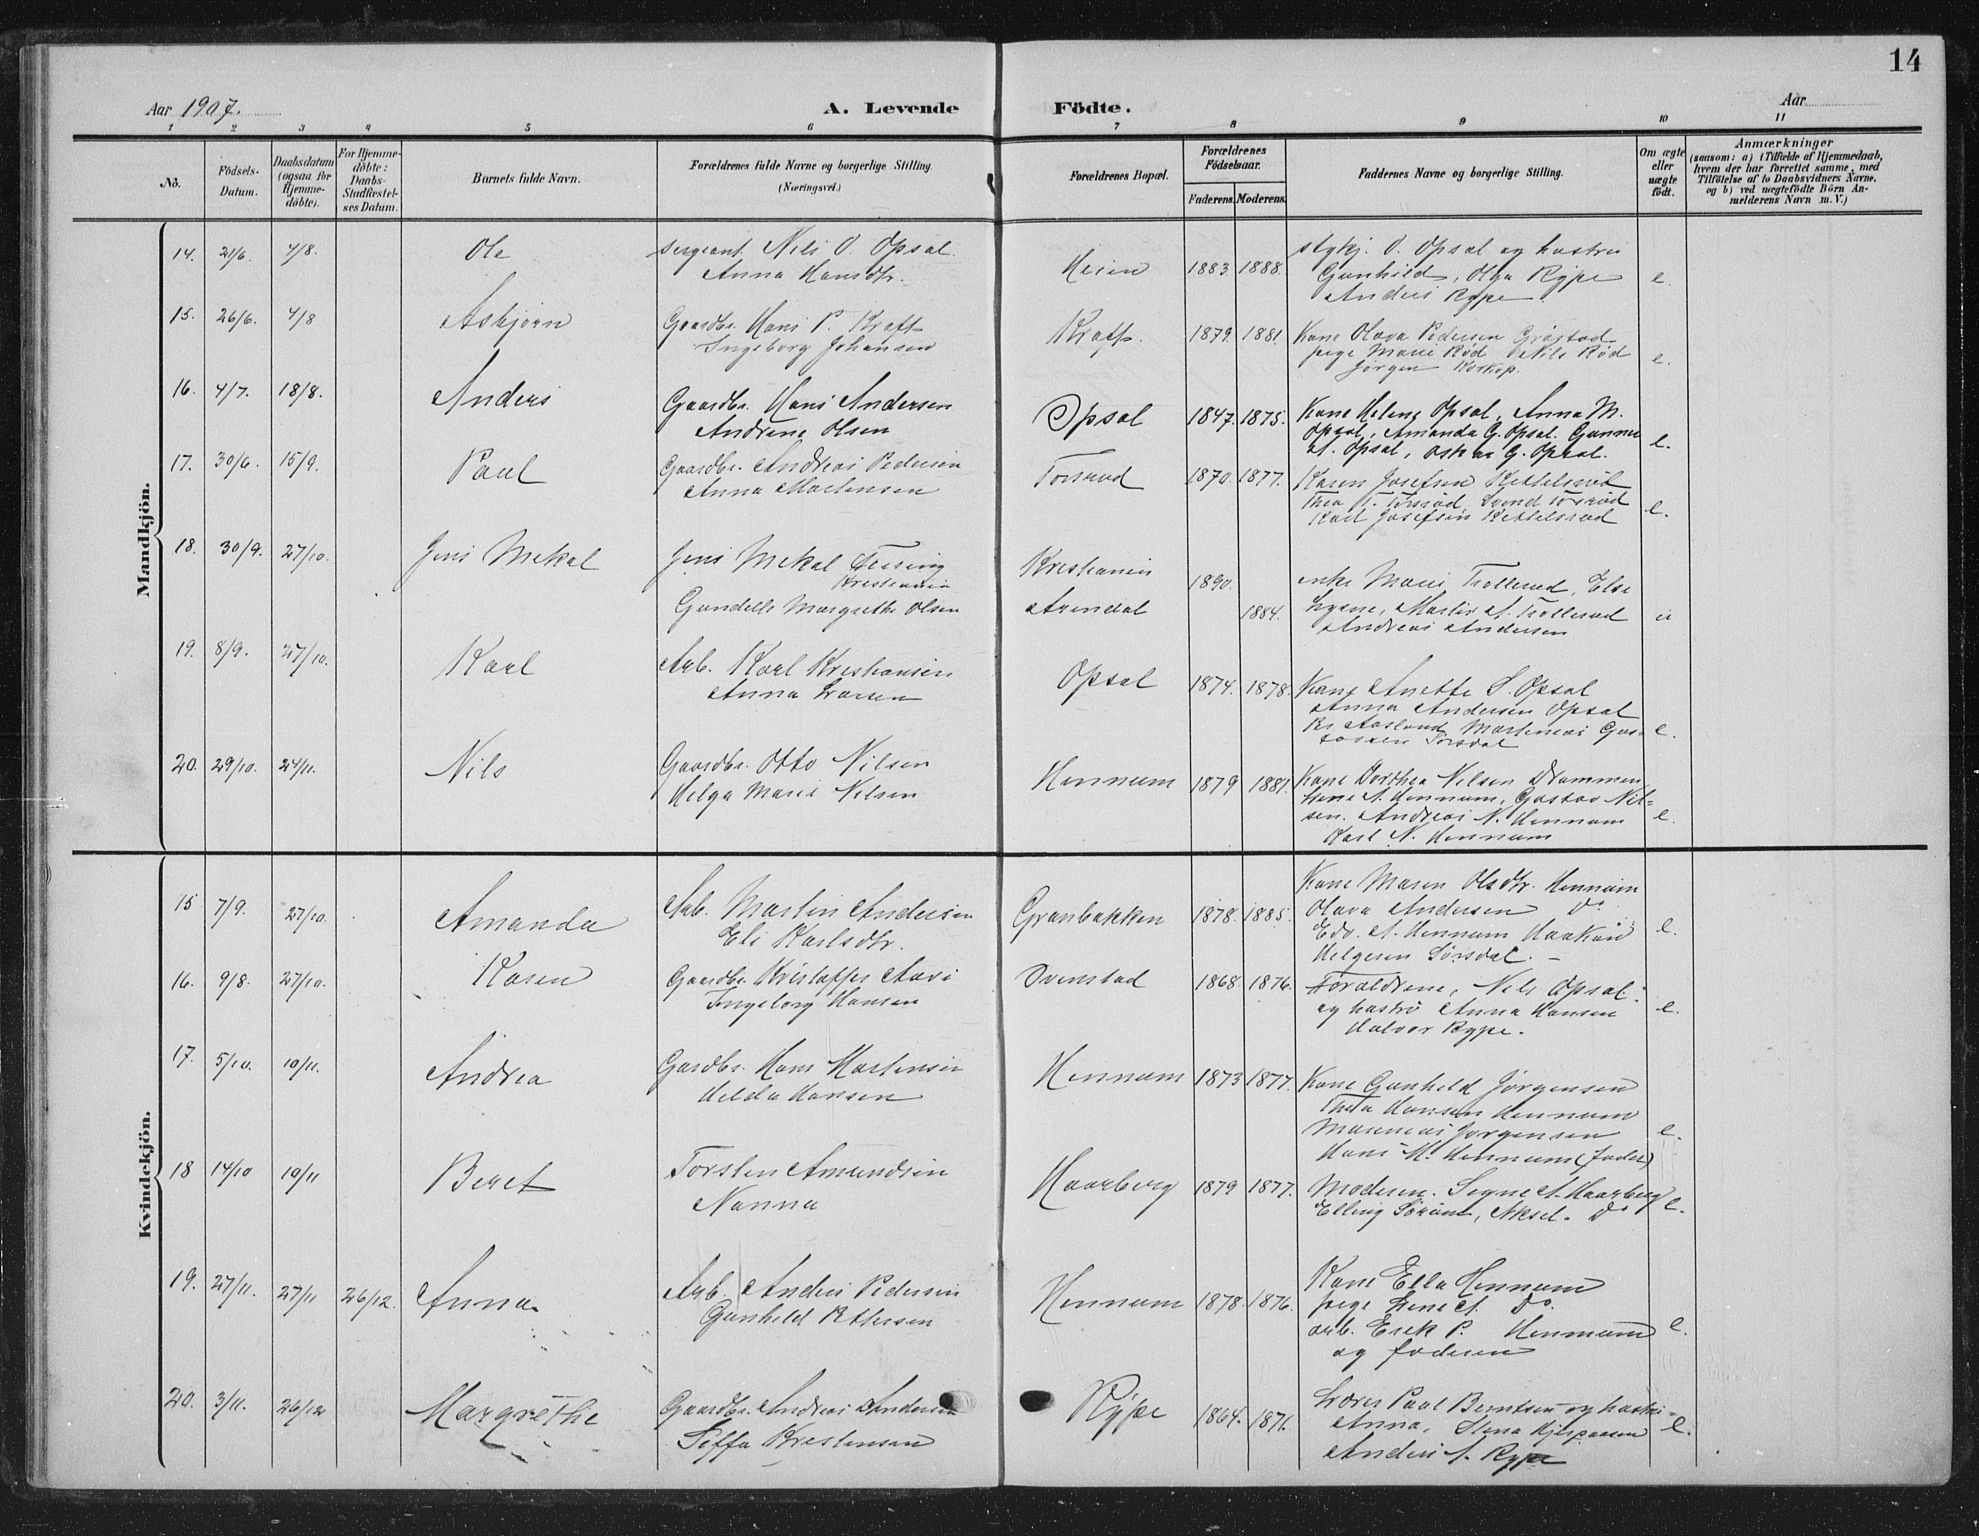 14
Aar 1907.
A. Levende Födte.
Aar
1 2 3 4 5 6 7 8 9 10 11
No.
Födsels-Datum.
Daabsdatum (ogsaa for Hjemme-döbte).
For Hjemme-döbte: Daabs-Stadfæstel-ses Datum.
Barnets fulde Navn.
Forældrenes fulde Navne og borgerlige Stilling.
(Næringsvei.)
Forældrenes Bopæl.
Forældrenes Födselsaar.
Faderens. Moderens.
Faddernes Navne og borgerlige Stilling.
Om ægte eller uægte födt.
Anmærkninger
(saasom: a) i Tilfælde af Hjemmedaab,
hvem der har forrettet samme, med
Tilföielse af to Daabsvidners Navne,
og b) ved uægtefödte Börn An-
melderens Navn m. V.)
Mandkjön.
14. 21/6. 4/8. Ole Sergeant Nils O. Opsal Heien 1883 1888. O. Opsal og hustru
Anna Hansdtr. Gunhild, Olga Rype e.
Anders Rype
15. 26/6. 4/8 Asbjørn Gaardbr. Hans P. Kraft Kraft. 1879. 1881 Kone Olava Pedersen Grøstad
Ingeborg Johansen pige Marie Rød Nils Rød e.
Jørgen
16. 4/7. 18/8. Anders Gaardbr. Hans Andersen Opsal 1847. 1875. Kone Helene Opsal, Anna M.
Andrine Olsen Opsal, Amanda G. Opsal. Gunner e.
A. Opsal, Oskar G. Opsal.
17. 30/6. 15/9. Paul Gaardbr. Andreas Pedersen Torsrud 1870. 1877. Karen Josefsen
Anna Martinsen Thea T. Torsrød, e.
Karl Josefsen
18. 30/9. 27/10. Jens Mekal Jens Mekal Kristiania 1890. enke Marie Trollerud, Else
Kristiania
Gundelle Margrethe Olsen Arendal 1884. Martin A. Trollerud u
Andreas Andersen
19. 8/9. 27/10. Karl Arb. Karl Kristiansen Opsal 1874. 1878. Kone Anette S. Opsal
Anna Larsen Anna Andersen Opsal
Kr. Aaslund, Martinius Gus- e.
Sørsdal
20. 29/10. 24/11. Nils Gaardbr. Otto Nilsen Hennum 1879 1881. Kone Dorthea Nilsen Drammen
Helga Marie Nilsen Lene A. Hennum, Gustav Nil-
sen. Andreas N. Hennum e.
Karl N. Hennum
Kvindekjön.
15 7/9. 27/10. Amanda Arb. Martin Andersen Granbakken 1878. 1885. Kone Maren Olsdtr. Hennum
Eli Karlsdtr. Olava Andersen Do e.
Edv. A. Hennum Haakon
Helgesen Sørsdal. -
16. 9/8. 27/10. Karen Gaardbr. Kristoffer Ovenstad 1868 1876. Forældrene, Nils Opsal
Ingeborg Hansen og hustru Anna Hansen e.
Halvor Rype.
17. 5/10. 10/11. Andrea Gardbr. Hans Martinsen Hennum 1873 1877. Kone Gunhild Jørgensen
Hilda Hansen Thea Hansen Hennum
Jørgensen e.
Hans M. Hennum (fader)
18 14/10 10/11 Beret Torsten Amundsen Haarberg 1879 1877. Moderen. Signe A. Haarberg
Nanna Elling Aksel. Do e.
19. 27/11. 27/11 26/12. Anna Arb. Anders Pedersen Hennum 1878. 1876. Kone Ella Hennum
Gunhild Pettersen pige Lene A. Do.
arb. Erik P. Hennum e.
og faderen
20. 3/11. 26/12 Margrethe Gaardbr. Andreas Andersen Rype 1864. 1876. Lærer Paul Berntsen og hustru
Kristensen Anna, Stena e.
Anders A. Rype